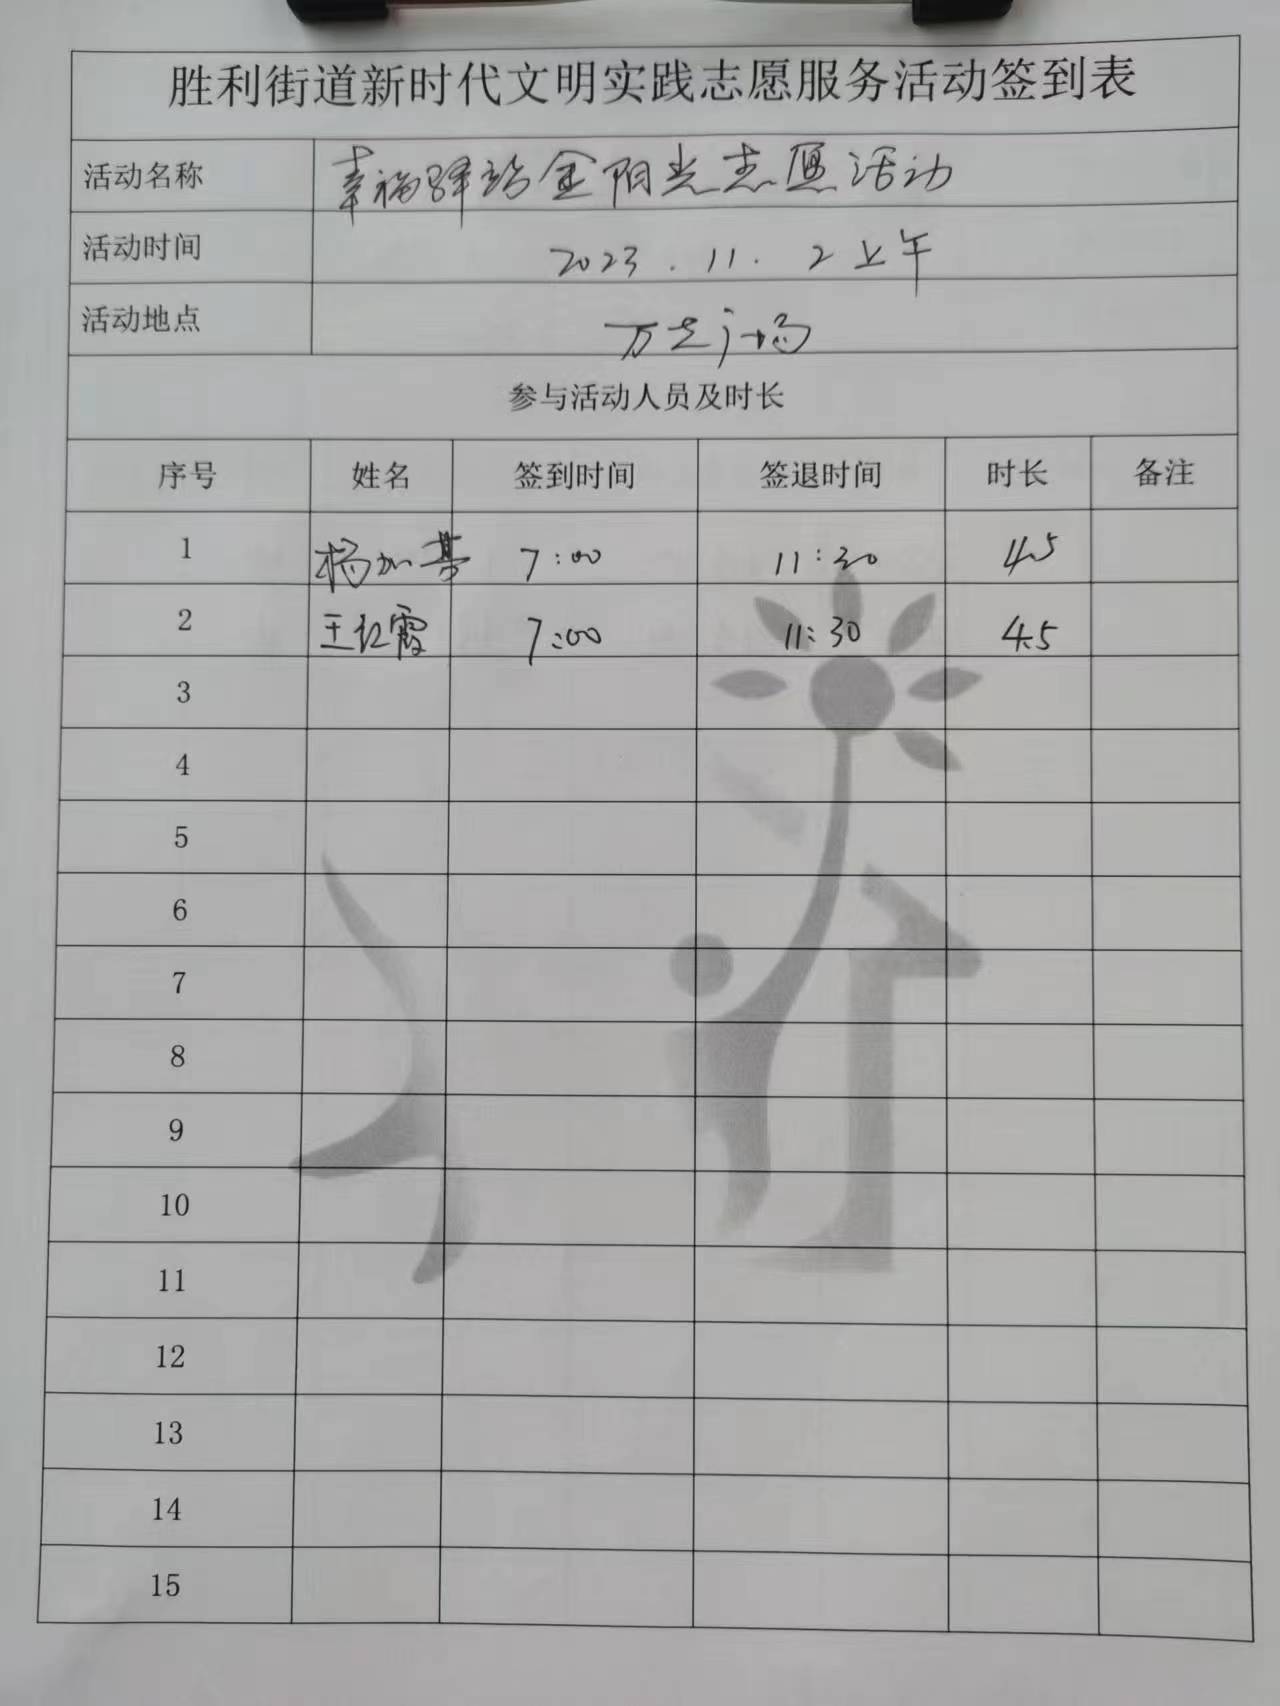 胜利街道新时代文明实践志愿服务活动签到表
活动名称 幸福驿站金阳光志愿活动
活动时间 2023.11.2上午
活动地点 万达广场
参与活动人员及时长
序号 姓名 签到时间 签退时间 时长 备注
1 杨加基 7:00 11:30 4.5
2 王红霞 7:00 11:30 4.5
3
4
5
6
7
8
9
10
11
12
13
14
15